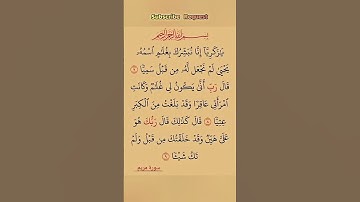 Subscribe Request
بسم الله الرحمن الرحيم
يَٰزَكَرِيَّآ إِنَّا نُبَشِّرُكَ بِغُلَٰمٍ ٱسْمُهُۥ
يَحْيَىٰ لَمْ نَجْعَل لَّهُۥ مِن قَبْلُ سَمِيًّا ٧
قَالَ رَبِّ أَنَّىٰ يَكُونُ لِى غُلَٰمٌ وَكَانَتِ
ٱمْرَأَتِى عَاقِرًا وَقَدْ بَلَغْتُ مِنَ ٱلْكِبَرِ
عِتِيًّا ٨ قَالَ كَذَٰلِكَ قَالَ رَبُّكَ هُوَ
عَلَىَّ هَيِّنٌ وَقَدْ خَلَقْتُكَ مِن قَبْلُ وَلَمْ
تَكُ شَيْـًٔا ٩
سورة مريم